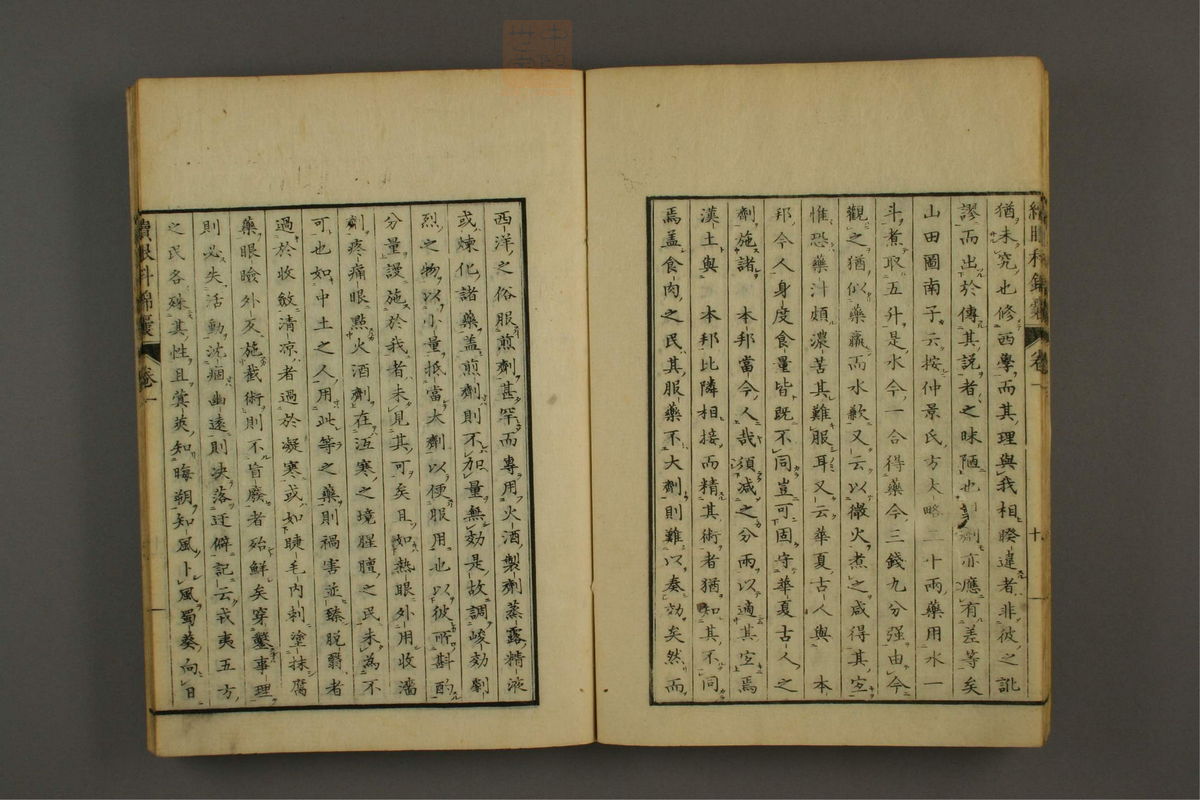 續眼科錦囊 卷一 十
猶未究也修西學而其理與我相暌違者非彼之訛
謬而出於傳其說者之昧陋也 劑亦應有差等矣
山田圖南子云按仲景氏方大略三十兩藥用水一
斗煮取五升是水今一合得藥今三錢九分强由今
觀之猶似藥羸而水歉又云以微火煮之咸得其宜
惟恐藥汁頗濃苦其難服耳又云華夏古人與 本
邦今人身度食量皆既不同豈可固守華夏古人之
劑施諸 本邦當今人哉須減之分兩以適其宜焉
漢土與 本邦比隣相接而精其術者猶知其不同
焉盖食肉之民其服藥不大劑則難以奏効矣然而
西洋之俗服煎劑甚罕而專用火酒製劑蒸露精液
或煉化諸藥盖煎劑則不加量無効是故調峻効劇
烈之物以小量抵當大劑以便服用也以彼所斟酌
分量謾施於我者未見其可矣且如熱眼外用收濇
劑疼痛眼點火酒劑在沍寒之境腥膻之民未為不
可也如中土之人用此等之藥則禍害並臻脫翳者
過於收斂清凉者過於凝寒或如睫毛內刺塗抹腐
藥眼瞼外反施截術則不盲廢者殆鮮矣穿鑿事理
則必失活動沈痼幽遠則决落迂僻記云戎夷五方
之民各殊其性且蓂莢知晦朔知風卜風蜀葵向日
續眼科錦囊 卷一